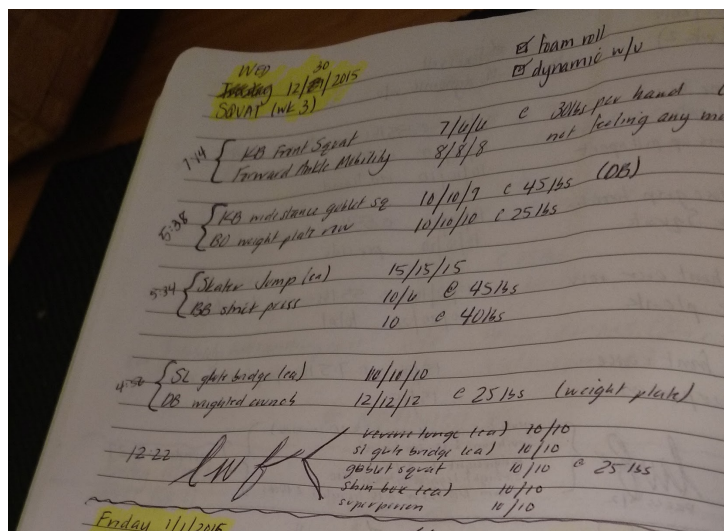 WED 30
12/ /2015
SQUAT (wk 3)
☑ foam roll
☑ dynamic w/u
7:14 KB Front Squat 7/6/6 @ 30lbs per hand
Forward Ankle Mobility 8/8/8 not feeling any
5:38 KB widestance goblet sq 10/10/9 @ 45lbs (DB)
BO weight plate row 10/10/10 @ 25lbs
5:34 Skater Jump (ea) 15/15/15
BB strict press 10/6 @ 45lbs
10 @ 40lbs
SL glute bridge (ea) 10/10/10
DB weighted crunch 12/12/12 @ 25lbs (weight plate)
12:22
reverse lunge (ea) 10/10
sl glute bridge (ea) 10/10
goblet squat 10/10 @ 25 lbs
shin box (ea) 10/10
10/10
Friday 1/1/2015